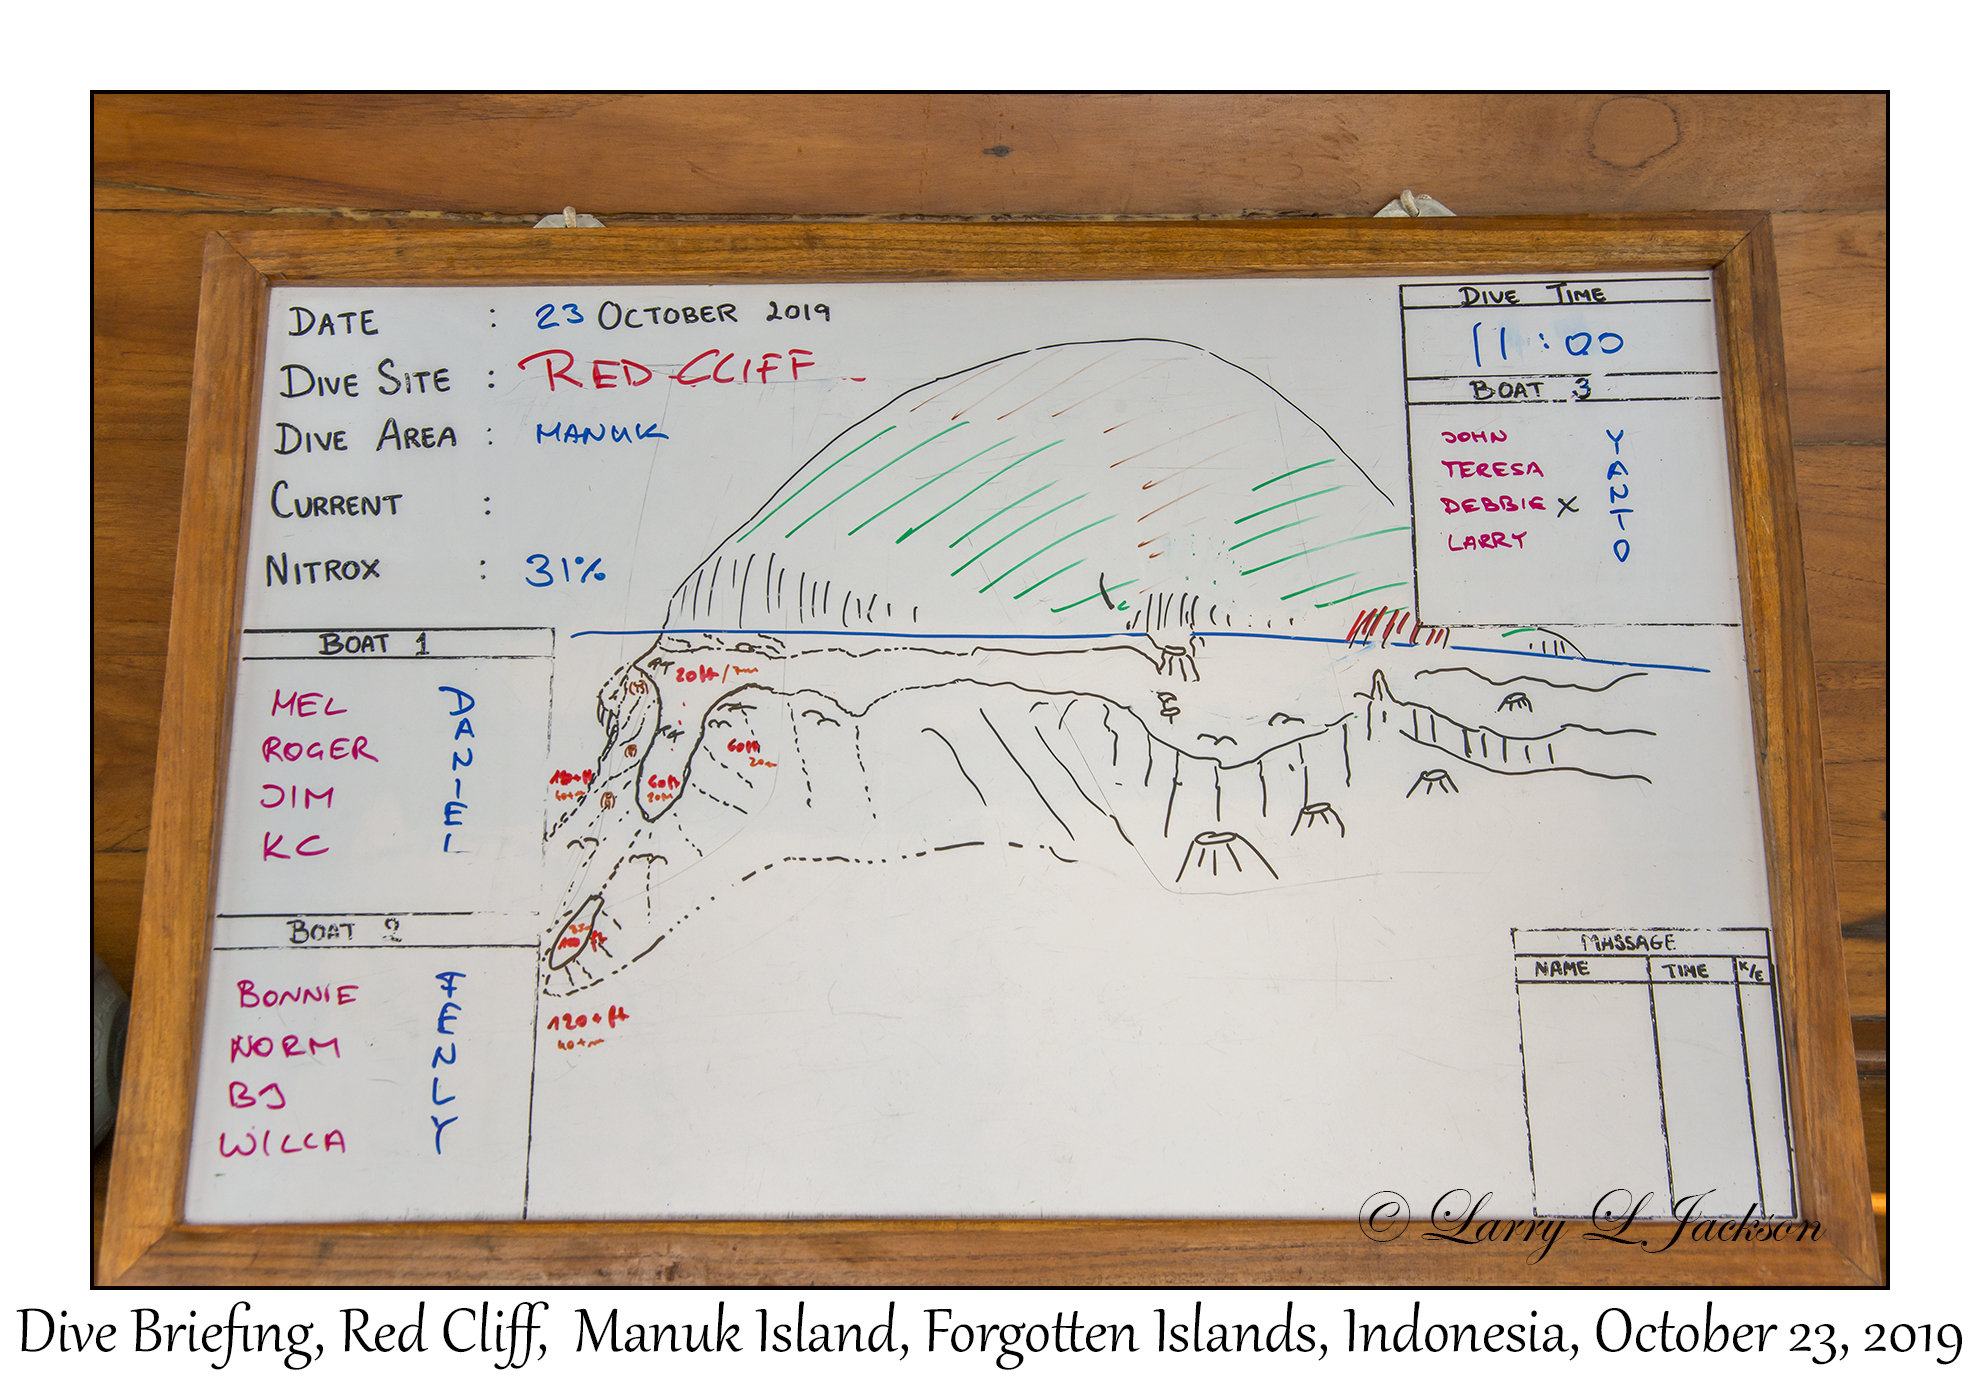 DATE : 23 OCTOBER 2019
DIVE SITE : RED CLIFF
DIVE AREA : MANUK
CURRENT :
NITROX : 31%
DIVE TIME
11:00
BOAT 3
JOHN
TERESA
DEBBIE X
LARRY
YANTO
BOAT 1
MEL
ROGER
JIM
KC
DANIEL
BOAT 2
BONNIE
NORM
BJ
WILLA
FENLY
20ft/7m
60ft
20m
60ft
20M
100 ft
120+ft
40+m
MASSAGE
NAME TIME K/E
© Larry L Jackson
Dive Briefing, Red Cliff, Manuk Island, Forgotten Islands, Indonesia, October 23, 2019